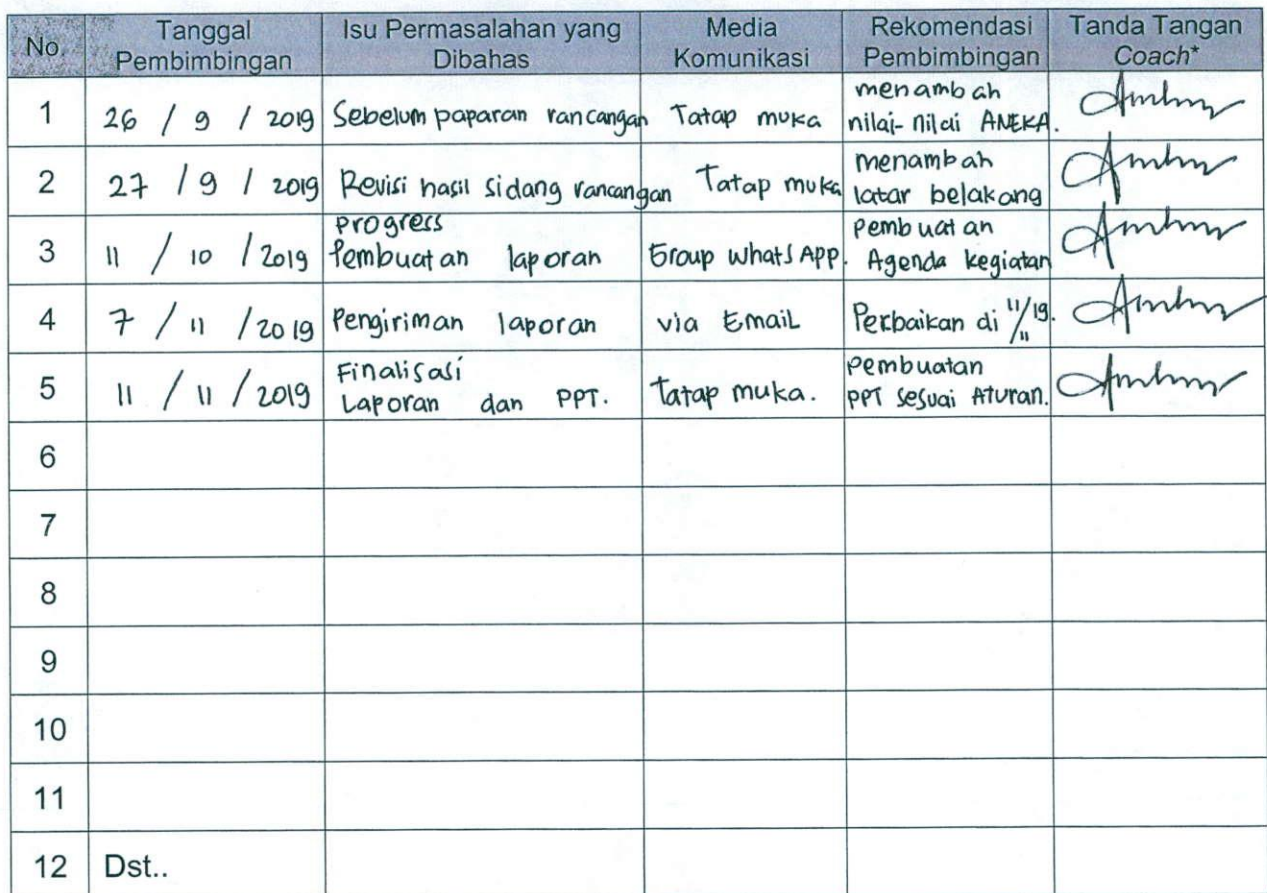 No. Tanggal Pembimbingan Isu Permasalahan yang Dibahas Media Komunikasi Rekomendasi Pembimbingan Tanda Tangan Coach*
1 26 / 9 / 2019 Sebelum paparan rancangan Tatap muka menambah nilai-nilai ANEKA.
2 27 / 9 / 2019 Revisi hasil sidang rancangan Tatap muka menambah latar belakang
3 11 / 10 / 2019 progress Pembuatan laporan Group WhatsApp. Pembuatan Agenda kegiatan
4 7 / 11 / 2019 Pengiriman laporan via Email Perbaikan di 11/11/19.
5 11 / 11 / 2019 Finalisasi Laporan dan PPT. Tatap muka. Pembuatan PPT sesuai Aturan.
6
7
8
9
10
11
12 Dst..